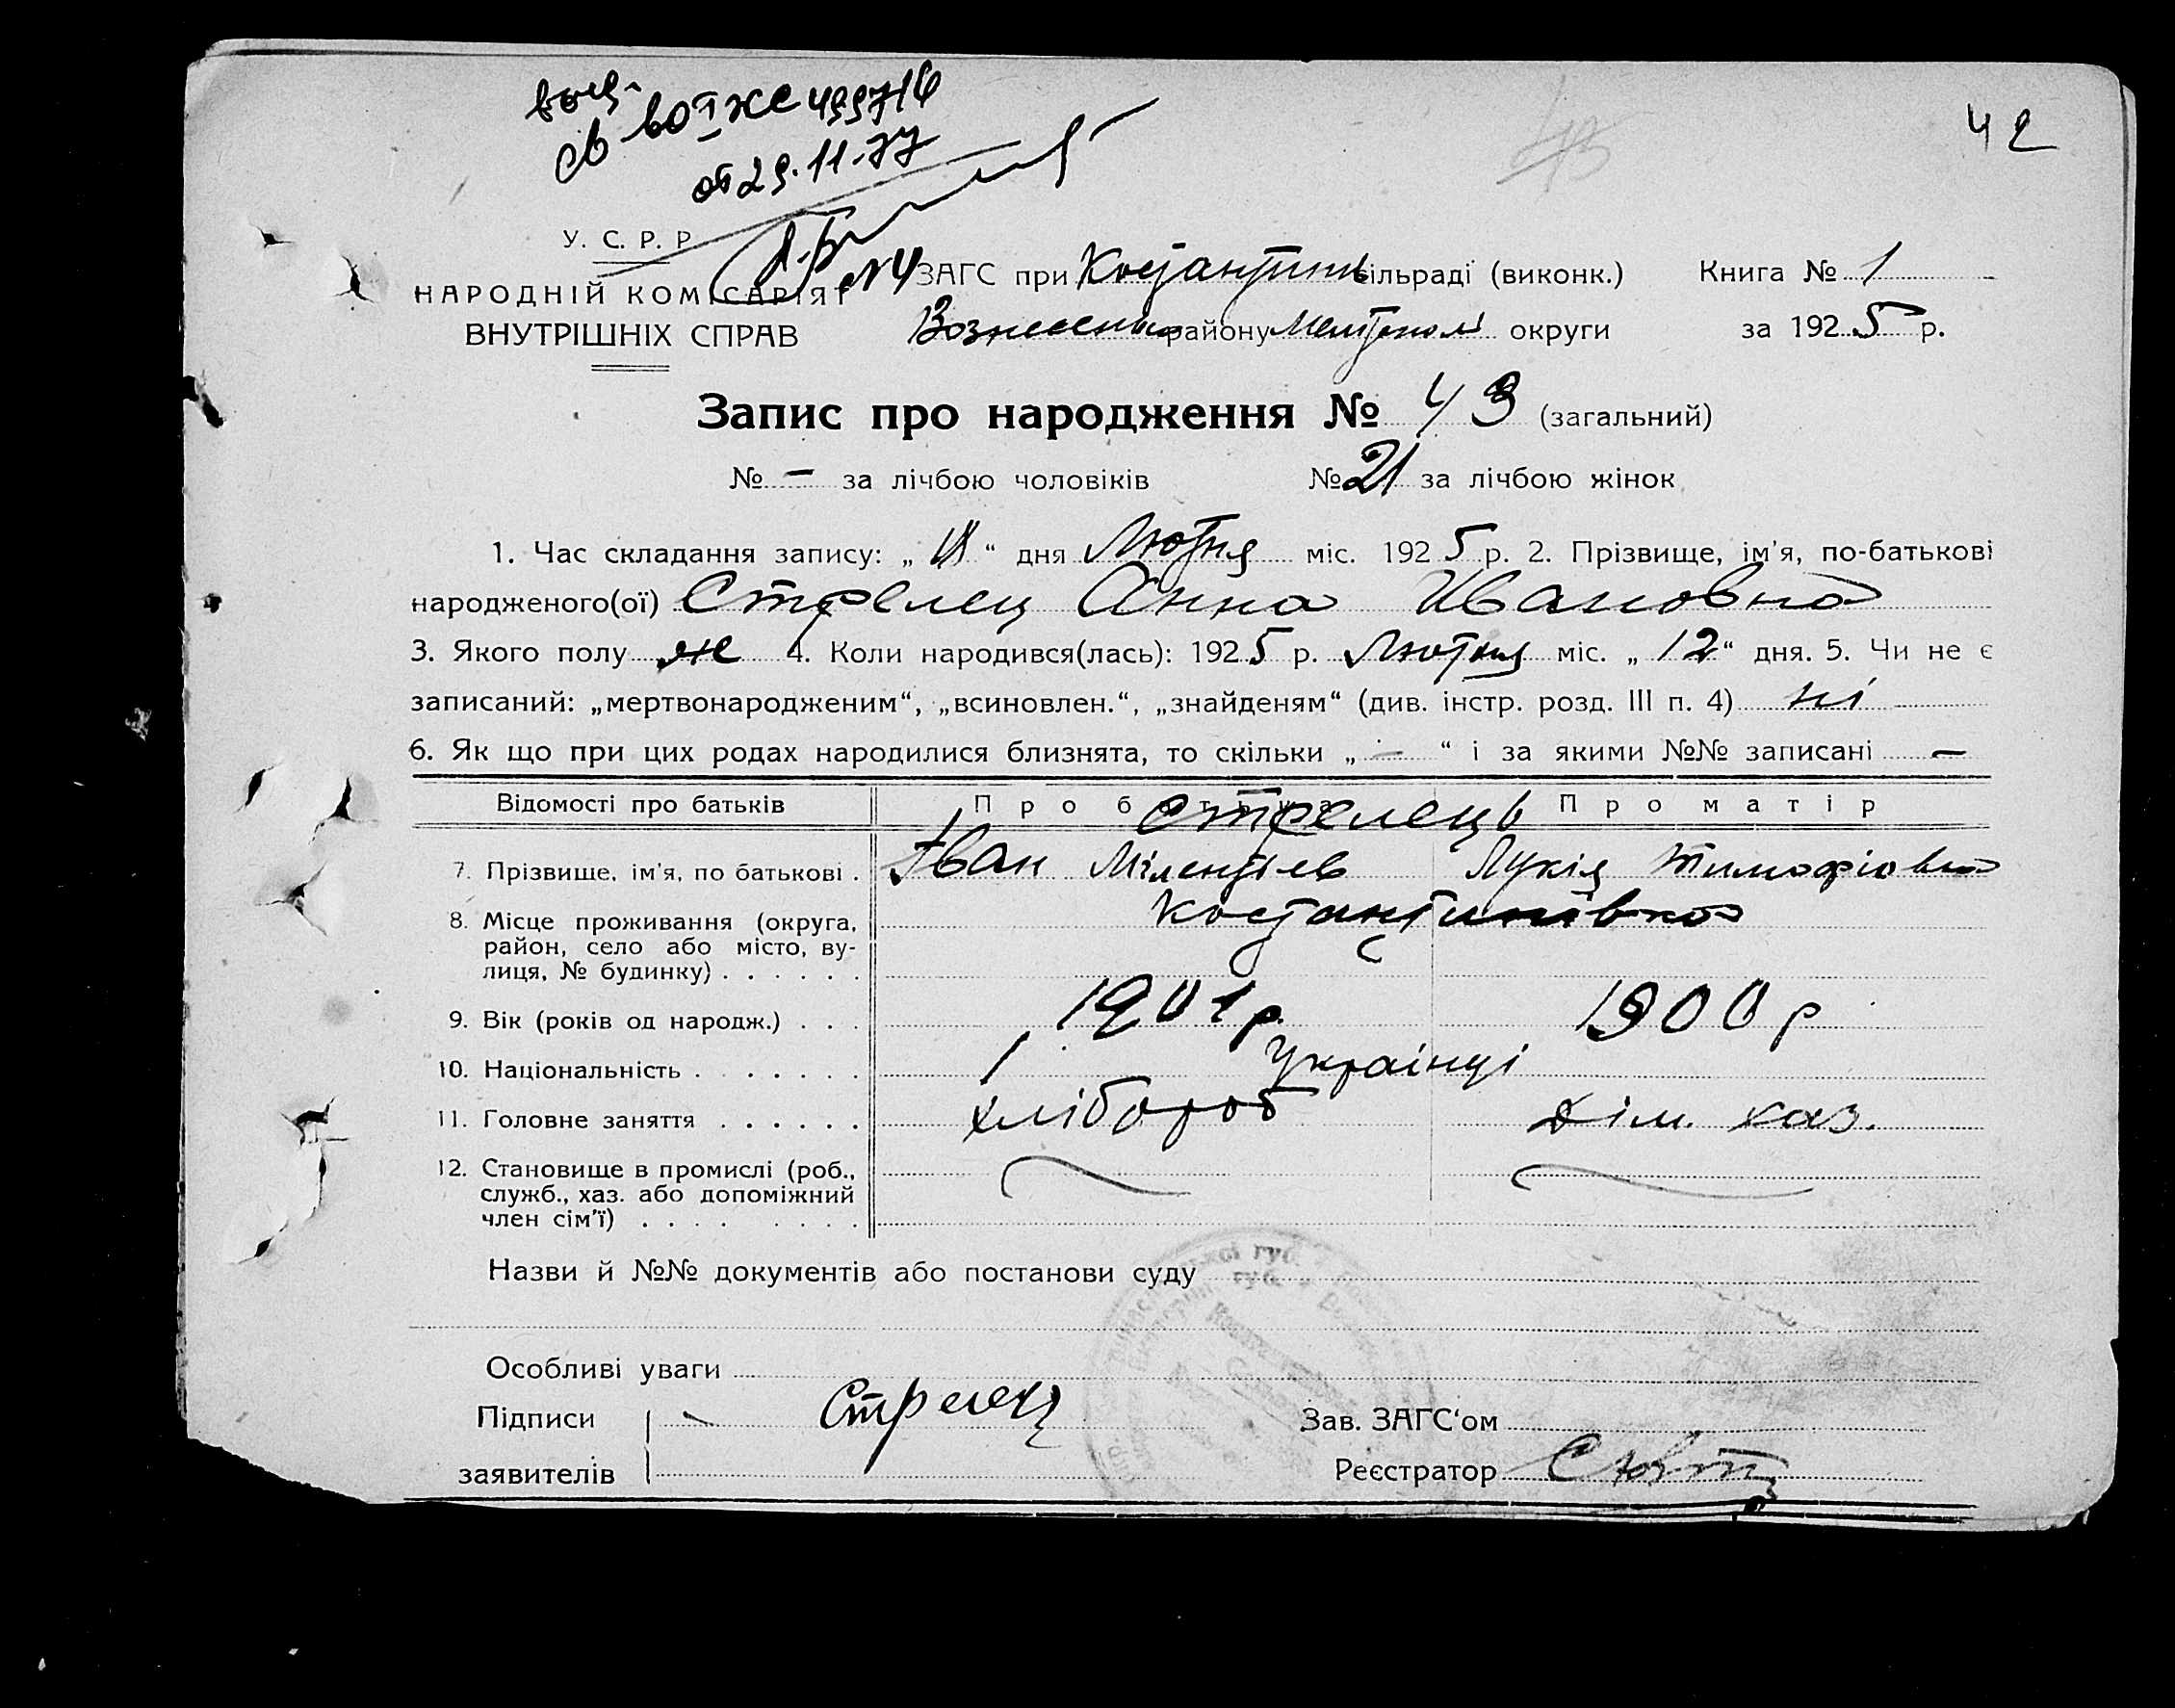 42
выд.
св-во II ЖС 499716
от 29.11.77
У. С. Р. Р.
НАРОДНІЙ КОМІСАРІЯТ
ВНУТРІШНІХ СПРАВ
ЗАГС при Костантин сільраді (виконк.) Книга № 1
Вознесенськ району Мелітополь округи за 1925 р.
Запис про народження № 43 (загальний)
№ – за лічбою чоловіків № 21 за лічбою жінок
1. Час складання запису: „ “ дня Лютня міс. 1925 р. 2. Прізвище, ім'я, по-батькові
народженого(ої) Стрелец Анна Ивановна
3. Якого полу же 4. Коли народився(лась): 1925 р. Лютня міс. „12“ дня. 5. Чи не є
записаний: „мертвонародженим“, „всиновлен.“, „знайденям“ (див. інстр. розд. III п. 4) ні
6. Як що при цих родах народилися близнята, то скільки „–“ і за якими №№ записані –
Відомості про батьків Про батька Про матір
Стрелець
7. Прізвище, ім'я, по батькові . Іван Мілентіев Лукія Тимофіовна
8. Місце проживання (округа, Костантинівка
район, село або місто, ву-
лиця, № будинку) . . . . . .
9. Вік (років од народж.) . . . 1901 р. 1900 р
10. Національність . . . . . . . українці
11. Головне заняття . . . . . . хлібороб дім. хаз.
12. Становище в промислі (роб.,
служб., хаз. або допоміжний
член сім'ї) . . . . . . . .
Назви й №№ документів або постанови суду
Особливі уваги
Підписи Стрелец Зав. ЗАГС'ом
заявителів Реєстратор